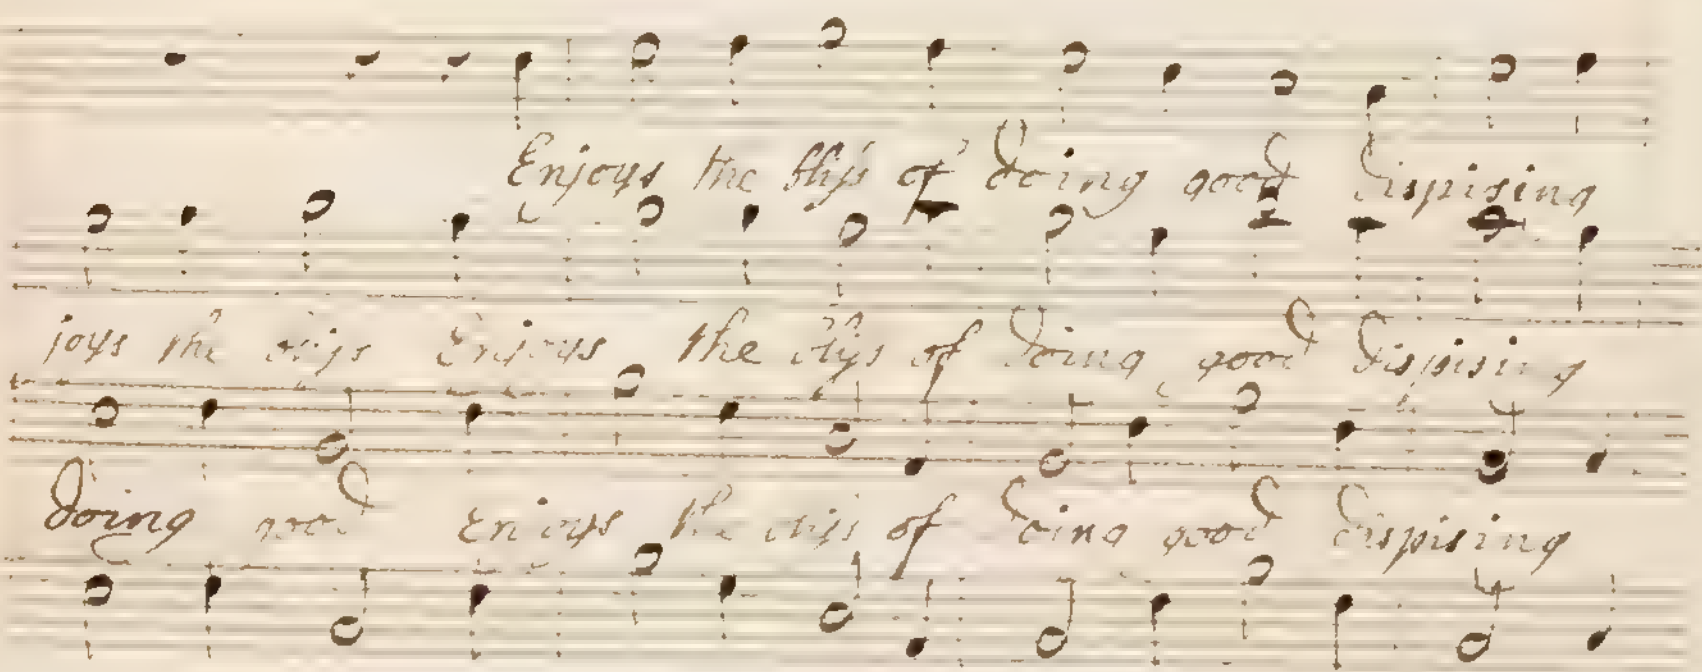 Enjoys the bliss of doing good dispising
joys the bliss Enjoys the bliss of doing good dispising
doing good Enjoys the bliss of doing good dispising